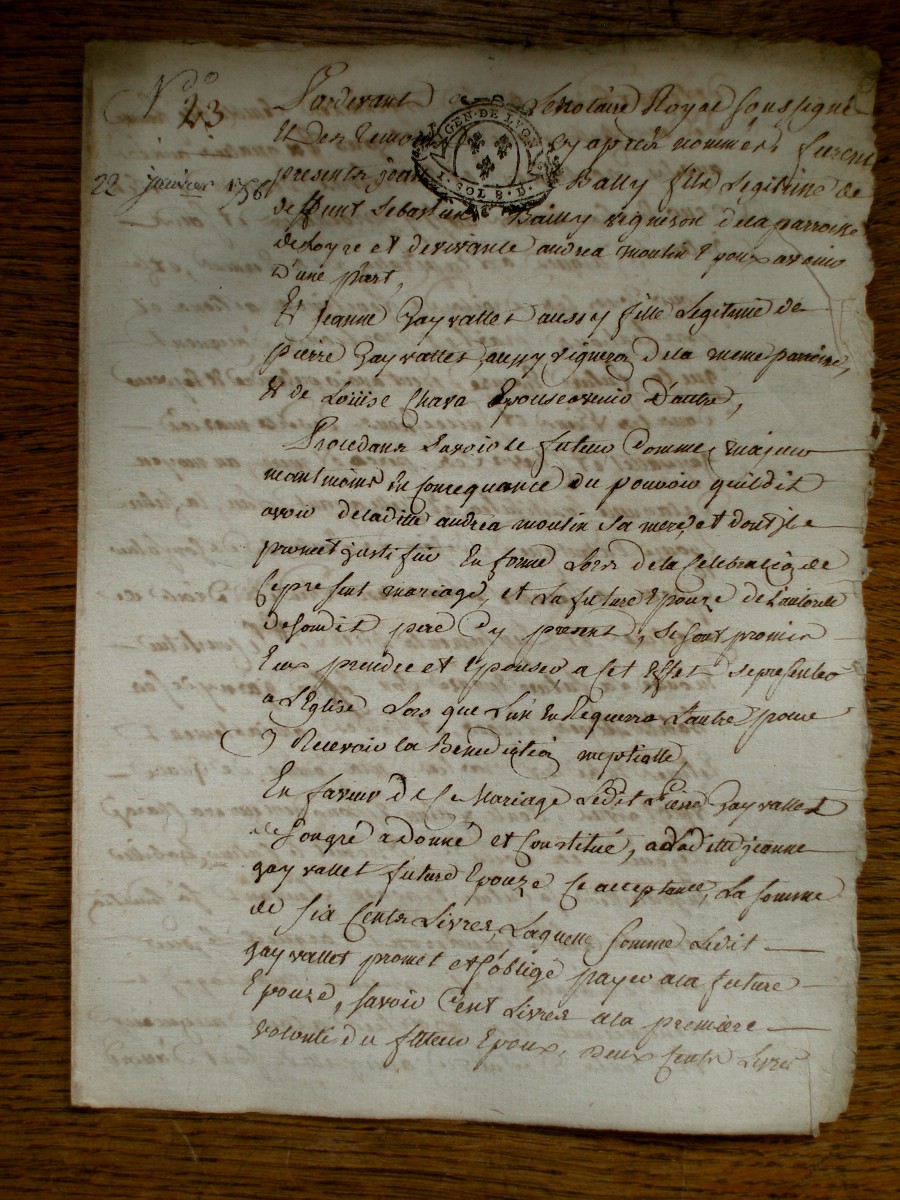 N.º 23
22 janvier 1756
Pardevant Le Notaire Royal soussigné
Et Des Temoins cy après nommés furent
GEN. DE LYON
8. SOL.
presents jean Bally fils Legitime de
deffunt Sebastien Bailly vigneron de la parroisse
de Loyre et de vivante andréa moulin Epoux avenir
D'une part,
Et jeanne Gayvallet aussy fille Legitime de
pierre Gayvallet, aussy vigneron de la meme parroisse,
Et de Louise Chava Epouse avenir D'autre,
Procedans savoir Le futeur Comme majeur
neantmoins En Consequance du pouvoir quil dit
avoir de laditte andréa moulin sa mere, et dont il
promet justifier En forme Lors de la Celebration de
Ce present mariage, et La future Epouze de L'autorité
de sondit pere Cy present, se sont promis
Eux prendre et Epouser a Cet Effet se presenter
a L'Eglise Lors que L'un En Requerra L'autre pour
y Recevoir la Benediction nuptialle,
En faveur de Ce Mariage Ledit Pierre Gayvallet
de son gré a donné et Constitué, a laditte jeanne
gayvallet future Epouze Ce acceptante, La somme
de six Cents Livres, Laquelle somme Ledit
gayvallet promet et s'oblige payer a la future
Epouze, savoir Cent Livres a la première
volonté du futeur Epoux, deux Cents Livres